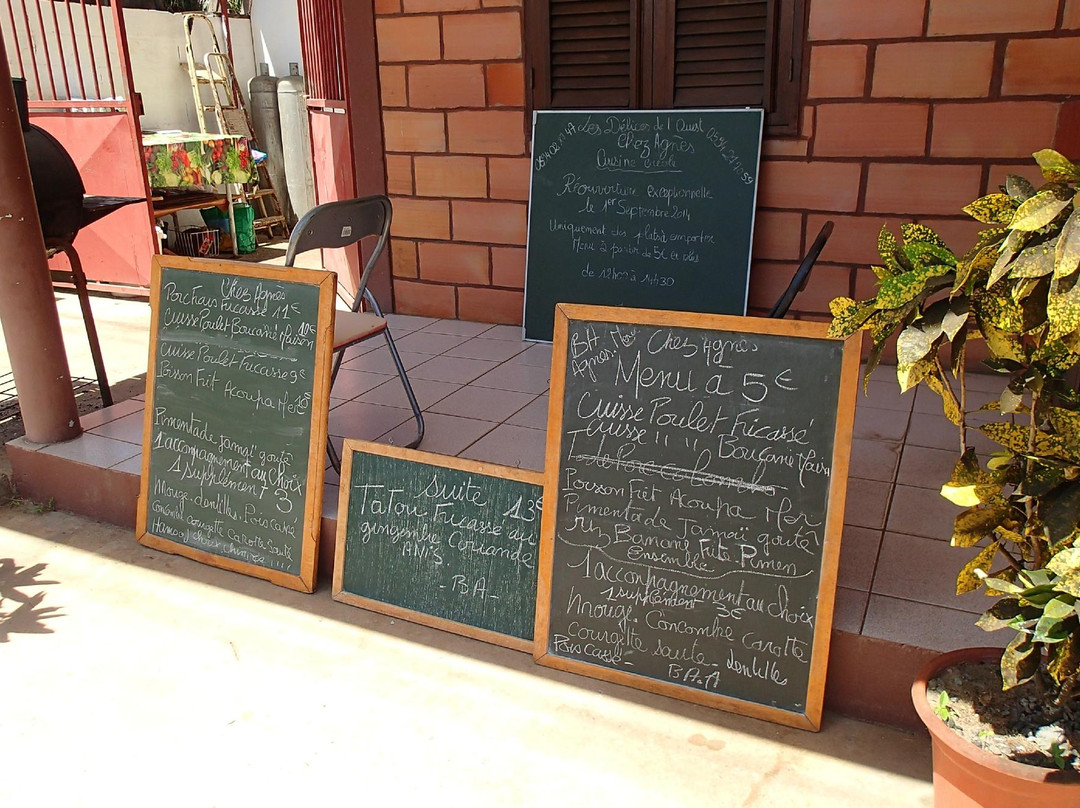 Les Délices de l'Ouest
Chez Agnès
Cuisine Créole
Réouverture exceptionnelle
le 1er Septembre 2014
Uniquement des plats à emporter
Menu à partir de 5€ et
de 12h00 à 14h30
Chez Agnès
Porc frais Fucassé 11€
Cuisse Poulet Boucanié Maison 10€
Cuisse Poulet Fucassé 9€
Poisson Frit Acoupa Mer 10€
Pimentade Jamaï goutê
1 accompagnement au choix
1 supplément 3
Nrouge - dentilles, Pois cassé
Concombre courgette Carotte Sauté
Suite
Tatou Fucassé au 13€
gingembre Coriande
ANIS
- BA -
BH
Agnès.
Chez Agnès
Menu à 5€
Cuisse Poulet Fucassé
Cuisse " " Boucanié Maison
Poisson Frit Acoupa Mer
Pimentade Jamaï goutê
riz Banane Frite Pimen
Ensemble
1 accompagnement au choix
1 supplément 3€
Nrouge. Concombre Carotte
Courgette Sauté - dentilles
Pois Cassé -
BA.A